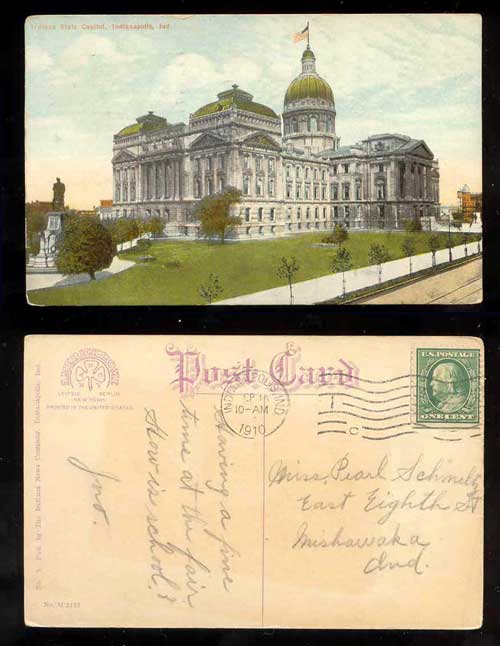 Indiana State Capitol, Indianapolis, Ind.
Post Card
LEIPZIG BERLIN
NEW YORK
PRINTED IN THE UNITED STATES
INDIANAPOLIS, IND
SEP 16
10-AM
1910
1
C
U.S. POSTAGE
ONE CENT
Having a fine
time at the fair
How is school?
Jno.
Miss. Pearl Schmeltz
East Eighth St
Mishawaka
Ind.
No. Pub. by The Indiana News Company, Indianapolis, Ind.
No. M 2115